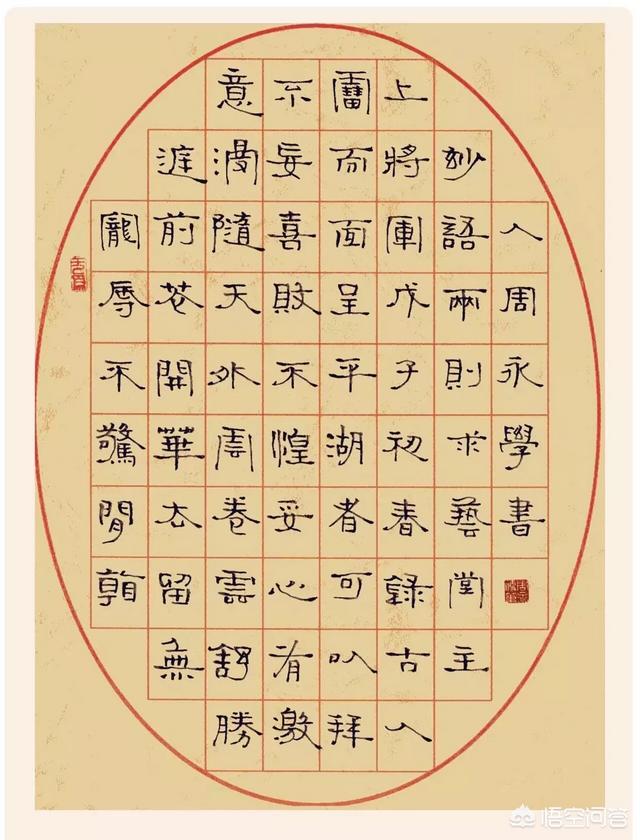 寵辱不驚閒看
庭前花開華去留無
意漫隨天外雲卷雲舒勝
不妄喜敗不惶妥心有激
雷而面呈平湖者可以拜
上將軍戊子初春錄古人
妙語兩則求藝堂主
人周永學書
悟空问答